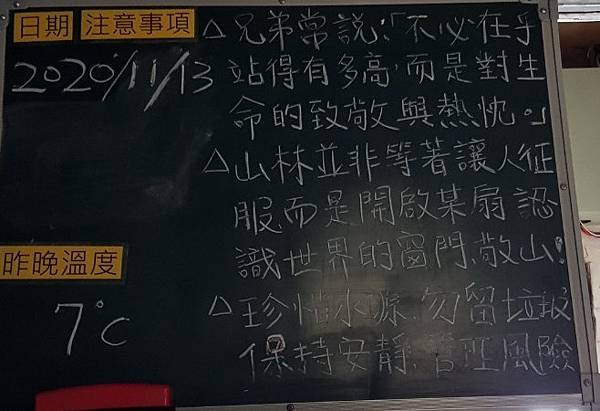 日期 注意事項
2020/11/13
△兄弟常說:「不必在乎
站得有多高,而是對生
命的致敬與熱忱。」
△山林並非等著讓人征
服而是開啟某扇認
識世界的窗門,敬山!
昨晚溫度
7°C
△珍惜水源.勿留垃圾
保持安靜.管理風險